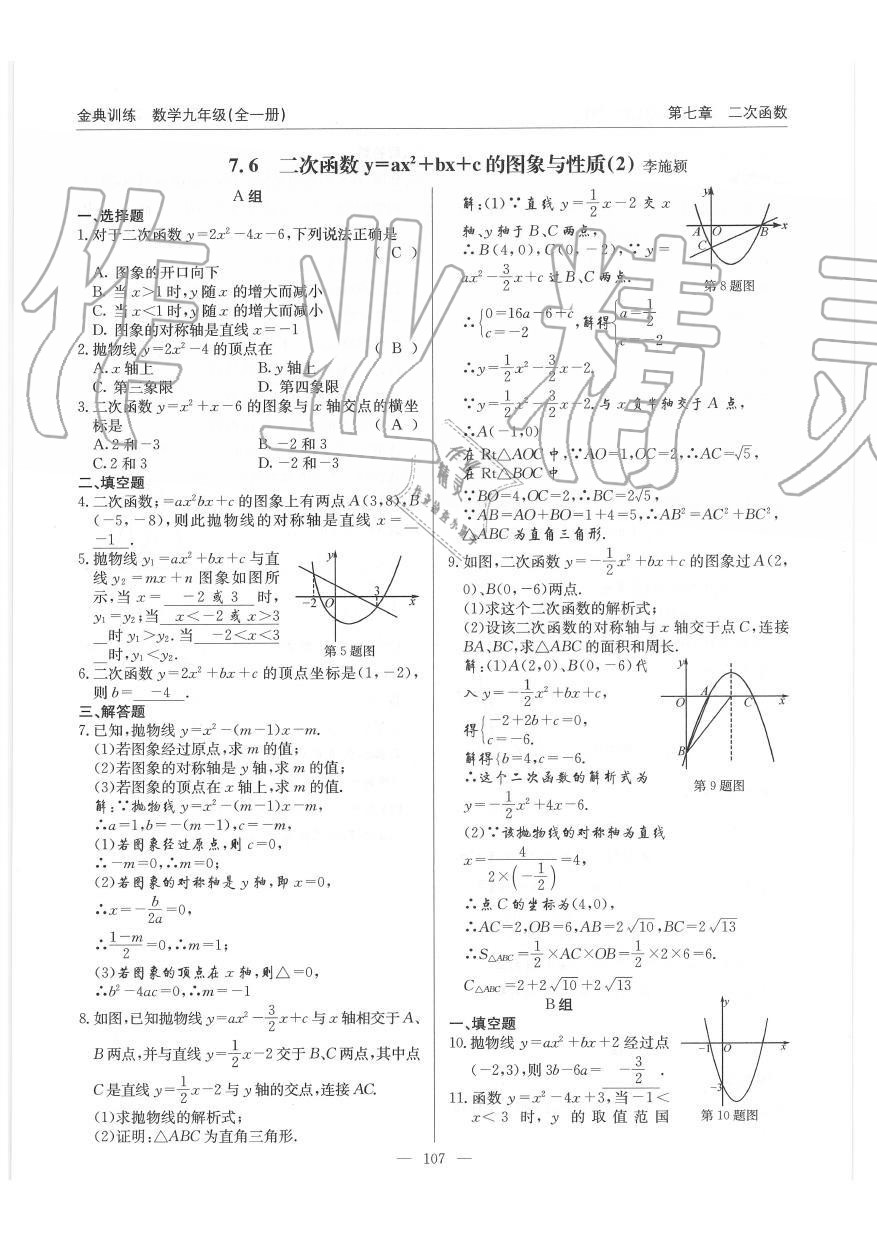 金典训练　数学九年级(全一册)
第七章　二次函数
7.6　二次函数 y=ax²+bx+c 的图象与性质(2) 李施颖
A组
一、选择题
1.对于二次函数 y=2x²-4x-6,下列说法正确是
( C )
A. 图象的开口向下
B. 当 x>1 时,y 随 x 的增大而减小
C. 当 x<1 时,y 随 x 的增大而减小
D. 图象的对称轴是直线 x=-1
2.抛物线 y=2x²-4 的顶点在 ( B )
A.x 轴上 B.y 轴上
C. 第三象限 D. 第四象限
3.二次函数 y=x²+x-6 的图象与 x 轴交点的横坐
标是 ( A )
A.2 和-3 B.-2 和 3
C.2 和 3 D.-2 和-3
二、填空题
4.二次函数;=ax²bx+c 的图象上有两点 A(3,8),B
(-5,-8),则此抛物线的对称轴是直线 x=
-1 .
5.抛物线 y₁=ax²+bx+c 与直
线 y₂=mx+n 图象如图所
示,当 x= -2 或 3 时,
y₁=y₂;当 x<-2 或 x>3
时 y₁>y₂.当 -2<x<3
时,y₁<y₂.
y
-2 O 3 x
第 5 题图
6.二次函数 y=2x²+bx+c 的顶点坐标是(1,-2),
则 b= -4 .
三、解答题
7.已知,抛物线 y=x²-(m-1)x-m.
(1)若图象经过原点,求 m 的值;
(2)若图象的对称轴是 y 轴,求 m 的值;
(3)若图象的顶点在 x 轴上,求 m 的值.
解:∵抛物线 y=x²-(m-1)x-m,
∴a=1,b=-(m-1),c=-m,
(1)若图象经过原点,则 c=0,
∴-m=0,∴m=0;
(2)若图象的对称轴是 y 轴,即 x=0,
∴x=-b/2a=0,
∴(1-m)/2=0,∴m=1;
(3)若图象的顶点在 x 轴,则△=0,
∴b²-4ac=0,∴m=-1
8.如图,已知抛物线 y=ax²-3/2x+c 与 x 轴相交于 A、
B 两点,并与直线 y=1/2x-2 交于 B、C 两点,其中点
C 是直线 y=1/2x-2 与 y 轴的交点,连接 AC.
(1)求抛物线的解析式;
(2)证明:△ABC 为直角三角形.
解:(1)∵直线 y=1/2x-2 交 x
轴、y 轴于 B、C 两点,
∴B(4,0),C(0,-2),∵y=
ax²-3/2x+c 过 B、C 两点.
y
A O B x
C
第 8 题图
∴{0=16a-6+c
c=-2 ,解得{a=1/2
c=-2
∴y=1/2x²-3/2x-2.
∵y=1/2x²-3/2x-2.与 x 负半轴交于 A 点,
∴A(-1,0)
在 Rt△AOC 中,∵AO=1,OC=2,∴AC=√5,
在 Rt△BOC 中
∵BO=4,OC=2,∴BC=2√5,
∵AB=AO+BO=1+4=5,∴AB²=AC²+BC²,
△ABC 为直角三角形.
9.如图,二次函数 y=-1/2x²+bx+c 的图象过 A(2,
0)、B(0,-6)两点.
(1)求这个二次函数的解析式;
(2)设该二次函数的对称轴与 x 轴交于点 C,连接
BA、BC,求△ABC 的面积和周长.
解:(1)A(2,0)、B(0,-6)代
入 y=-1/2x²+bx+c,
得{-2+2b+c=0,
c=-6.
解得{b=4,c=-6.
∴这个二次函数的解析式为
y=-1/2x²+4x-6.
y
O A C x
B
第 9 题图
(2)∵该抛物线的对称轴为直线
x=4/(2×(-1/2))=4,
∴点 C 的坐标为(4,0),
∴AC=2,OB=6,AB=2√10,BC=2√13
∴S△ABC=1/2×AC×OB=1/2×2×6=6.
C△ABC=2+2√10+2√13
B组
一、填空题
10.抛物线 y=ax²+bx+2 经过点
(-2,3),则 3b-6a= -3/2 .
11.函数 y=x²-4x+3,当-1<
x<3 时,y 的取值范围
y
-1 O x
-3
第 10 题图
— 107 —
作业精灵